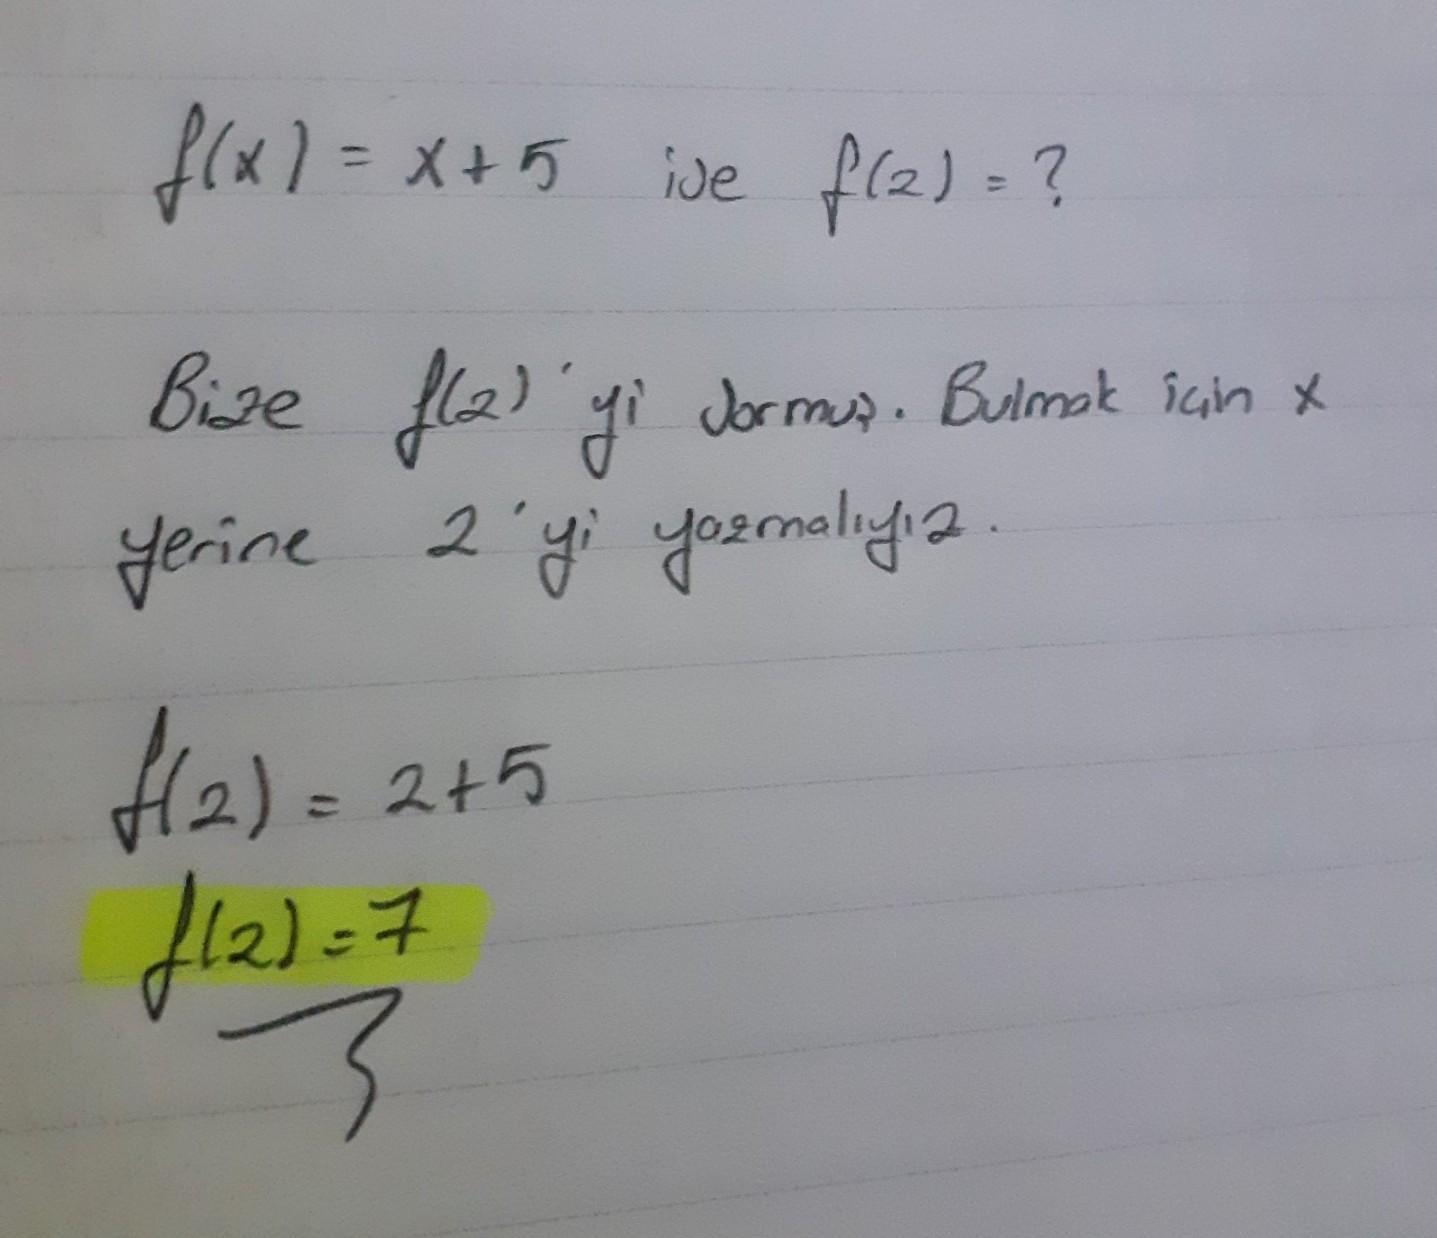 f(x) = x+5 ise f(2) = ?
Bize f(2)'yi sormuş. Bulmak için x
yerine 2'yi yazmalıyız.
f(2) = 2+5
f(2) = 7